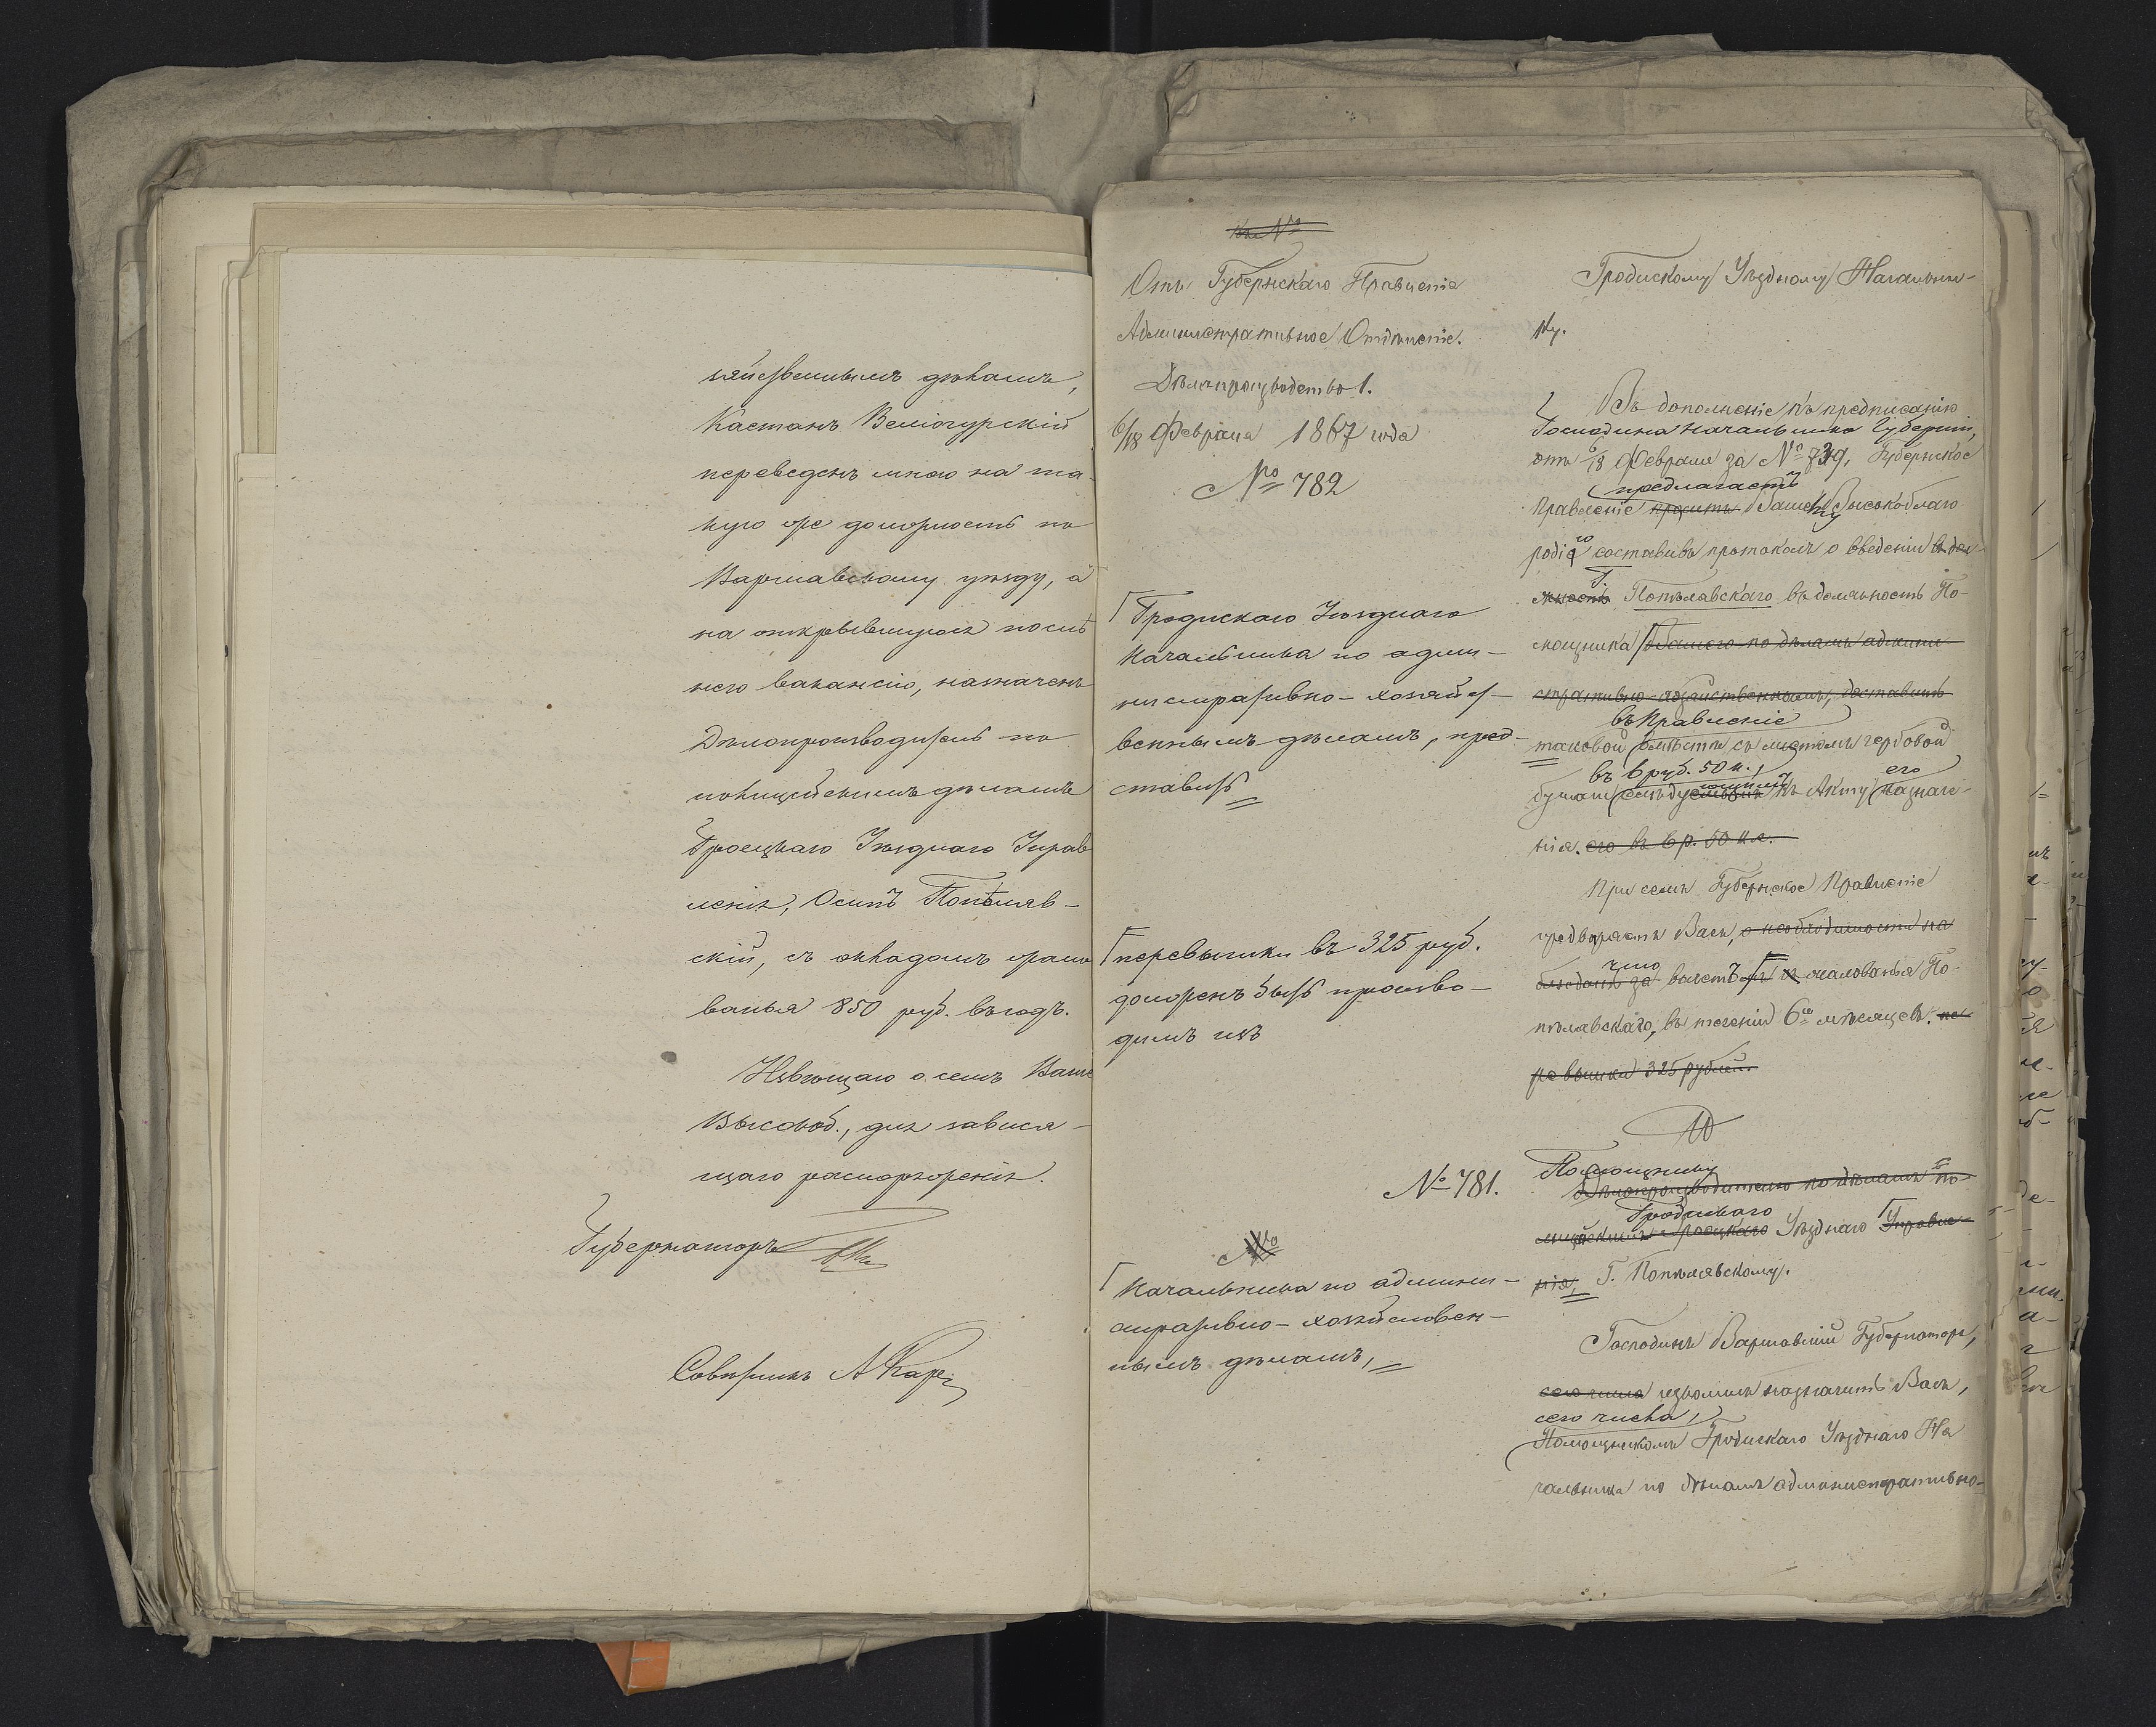 зяйственнымъ дѣламъ,
Кастанъ Веліогурскій
переведенъ мною на та-
кую же должность по
Варшавскому уѣзду, а
на открывшуюся послѣ
него вакансію, назначенъ
Дѣлопроизводитель по
полицейскимъ дѣламъ
Гроецкаго Уѣзднаго Управ
ленія, Осипъ Попѣляв-
скій, съ окладомъ жало
ванья 850 руб. въ годъ.
Извѣщаю о семъ Ваше
Высокоб., для завися-
щаго распоряженія.
Губернаторъ
Совѣтникъ
къ №
Отъ Губернскаго Правленія
Административное Отдѣленіе.
Дѣлопроизводство 1.
6/18 Февраля 1867 года
№ 782
Гродискаго Уѣзднаго
Начальника по адми-
нистративно-хозяйст-
веннымъ дѣламъ, пред-
ставить
перевышки въ 325 руб.
долженъ быть произво-
димъ изъ
№ 781.
№
Начальника по админи-
стративно-хозяйствен-
нымъ дѣламъ,
Гродискому Уѣздному Начальни-
ку.
Въ дополненіе къ предписанію
Господина Начальника Губерніи,
отъ 6/18 Февраля за № 739, Губернское
предлагаетъ
Правленіе проситъ Вашему Высокоблаго
родію составивъ протоколъ о введеніи въ дол
жность Г. Попѣлавскаго въ должность По-
мощника Вашего по дѣламъ админи
стративно-хозяйственнымъ, доставить
въ Правленіе
таковой вмѣстѣ съ листомъ гербовой
въ 6 руб. 50 к.,
бумаги къ Акту его назначе-
нія. его въ 6 р. 50 к.
При семъ Губернское Правленіе
предваряетъ Васъ, о необходимости на
что
за вычетъ изъ жалованья По-
пѣлавскаго, въ теченіи 6 мѣсяцевъ. пе
ревышки 325 рублей.
Помощнику
Дѣлопроизводителю по дѣламъ по-
Гродискаго
лицейскимъ Гроецкаго Уѣзднаго Управле-
нія, Г. Попѣлявскому.
Господинъ Варшавскій Губернаторъ,
сего числа изволилъ назначить Васъ,
сего числа,
Помощникомъ Гродискаго Уѣзднаго На
чальника по дѣламъ административно-